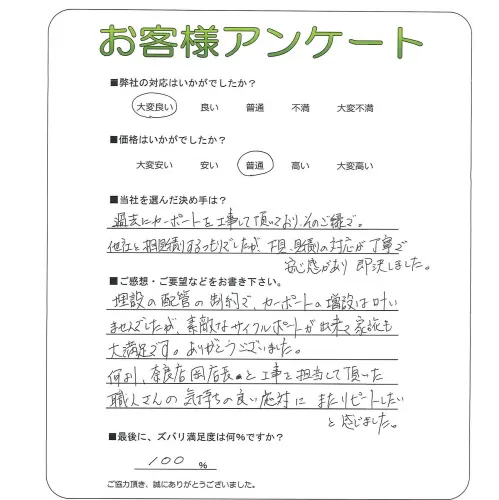 お客様アンケート
■弊社の対応はいかがでしたか？
大変良い 良い 普通 不満 大変不満
■価格はいかがでしたか？
大変安い 安い 普通 高い 大変高い
■当社を選んだ決め手は？
過去にカーポートを工事して頂いており、そのご縁で。
他社と相見積りするつもりでしたが、下見、見積りの対応が丁寧で
安心感があり即決しました。
■ご感想・ご要望などをお書き下さい。
埋設の配管の制約で、カーポートの増設は叶い
ませんでしたが、素敵なサイクルポートが出来て家族も
大満足です。ありがとうございました。
何より、奈良店岡店長と工事を担当して頂いた
職人さんの気持ちの良い応対にまたリピートしたい
と感じました。
■最後に、ズバリ満足度は何%ですか？
100 %
ご協力頂き、誠にありがとうございました。